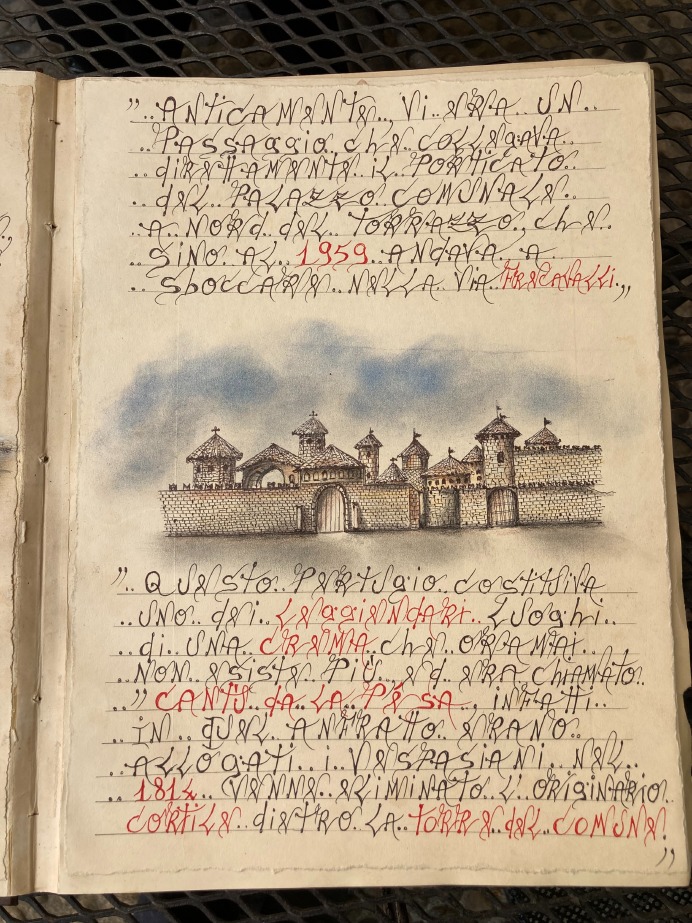 " .. ANTICAMENTE, VI ERA UN ..
.. PASSAGGIO chE COLLEGAVA ..
.. diRETTAMENTE iL PORTICATO ..
.. dEL PALAZZO COMUNALE ..
.. A NORd dEL TORRAZZO, chE ..
.. SINO AL 1959 ANdAVA A ..
.. SbOCCARE NELLA ViA FRECAVALLi. „
" .. QUESTO PERTUgiO COSTITUIVA
.. UNO dEi LEggIENDARI LUOghi ..
.. di UNA CREMA chE ORAMAI ..
.. NON ESISTE PIÙ, Ed ERA ChiAMATO ..
.. " CANTÙ dA LA PÉSA, iNFATTI ..
.. iN QUEL ANFRATTO ERANO ..
.. ALLOGATI i VESPASIANi NEL ..
.. 1814 VENNE ELIMINATO L'ORIGINARIO ..
CORTILE diETRO LA TORRE dEL COMUNE.
"